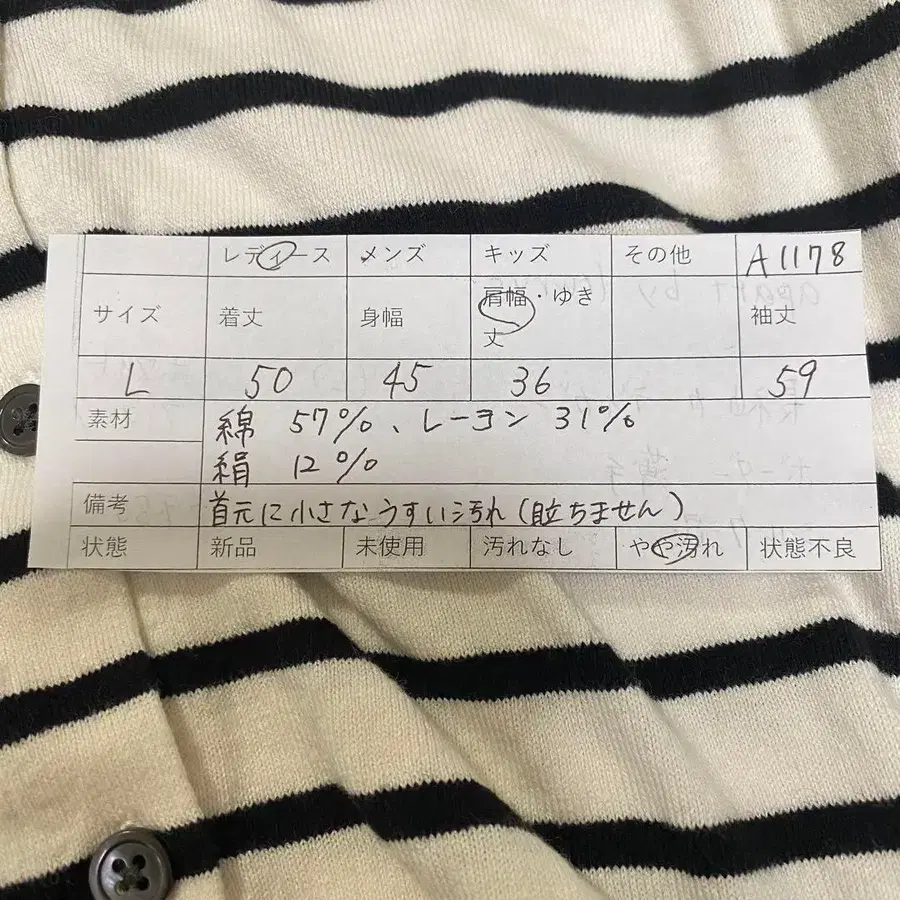 レディース メンズ キッズ その他 A1178
サイズ 着丈 身幅 肩幅・ゆき丈 袖丈
L 50 45 36 59
素材 綿 57%、レーヨン 31%
絹 12%
備考 首元に小さなうすい汚れ(目立ちません)
状態 新品 未使用 汚れなし やや汚れ 状態不良